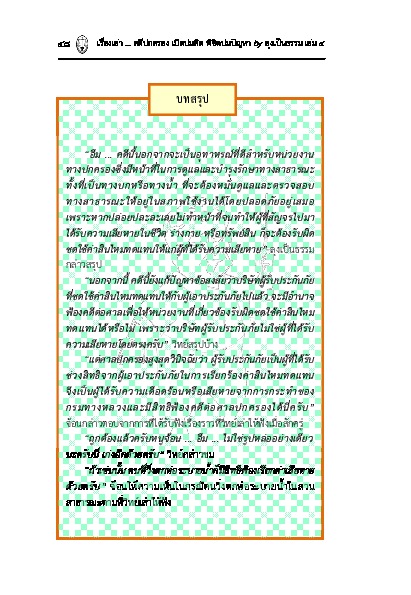 ๔๘ เรื่องเล่า ... คดีปกครอง เปิดปมคิด พิชิตปมปัญหา by ลุงเป็นธรรม เล่ม ๔
บทสรุป
“อืม ... คดีนี้นอกจากจะเป็นอุทาหรณ์ที่ดีสำหรับหน่วยงาน
ทางปกครองซึ่งมีหน้าที่ในการดูแลและบำรุงรักษาทางสาธารณะ
ทั้งที่เป็นทางบกหรือทางน้ำ ที่จะต้องหมั่นดูแลและตรวจสอบ
ทางสาธารณะให้อยู่ในสภาพใช้งานได้โดยปลอดภัยอยู่เสมอ
เพราะหากปล่อยปละละเลยไม่ทำหน้าที่จนทำให้ผู้ที่สัญจรไปมา
ได้รับความเสียหายในชีวิต ร่างกาย หรือทรัพย์สิน ก็จะต้องรับผิด
ชดใช้ค่าสินไหมทดแทนให้แก่ผู้ที่ได้รับความเสียหาย” ลุงเป็นธรรม
กล่าวสรุป
“นอกจากนี้ คดีนี้ยังแก้ปัญหาข้อสงสัยว่าบริษัทผู้รับประกันภัย
ที่ชดใช้ค่าสินไหมทดแทนให้กับผู้เอาประกันภัยไปแล้ว จะมีอำนาจ
ฟ้องคดีต่อศาลเพื่อให้หน่วยงานที่เกี่ยวข้องรับผิดชดใช้ค่าสินไหม
ทดแทนได้หรือไม่ เพราะว่าบริษัทผู้รับประกันภัยไม่ใช่ผู้ที่ได้รับ
ความเสียหายโดยตรงครับ” วิทย์สรุปบ้าง
“แต่ศาลปกครองสูงสุดวินิจฉัยว่า ผู้รับประกันภัยเป็นผู้ที่ได้รับ
ช่วงสิทธิจากผู้เอาประกันภัยในการเรียกร้องค่าสินไหมทดแทน
จึงเป็นผู้ได้รับความเดือดร้อนหรือเสียหายจากการกระทำของ
กรมทางหลวงและมีสิทธิฟ้องคดีต่อศาลปกครองได้นี่ครับ”
จ้อนกล่าวตอบจากการที่ได้รับฟังเรื่องราวที่วิทย์เล่าให้ฟังเมื่อสักครู่
“ถูกต้องแล้วครับหนูจ้อน ... อืม ... ไม่ใช่รูปหล่ออย่างเดียว
นะครับนี่ เก่งอีกด้วยครับ” วิทย์กล่าวชม
ด้วยครับ” จ้อนให้ความเห็นในกรณีตนวิ่งตกท่อระบายน้ำในสวน
สาธารณะตามที่วิทย์เล่าให้ฟัง